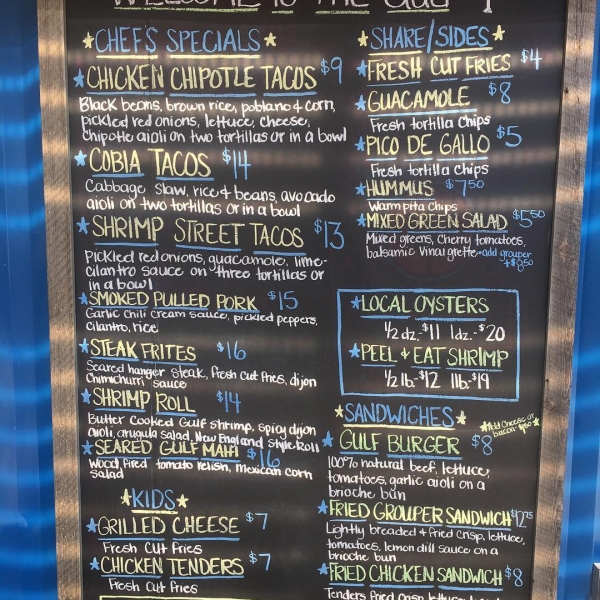 WELCOME TO THE
★CHEF'S SPECIALS★
★CHICKEN CHIPOTLE TACOS $9
Black beans, brown rice, poblano & corn,
pickled red onions, lettuce, cheese,
chipotle aioli on two tortillas or in a bowl
★COBIA TACOS $14
Cabbage slaw, rice & beans, avocado
aioli on two tortillas or in a bowl
★SHRIMP STREET TACOS $13
Pickled red onions, guacamole, lime-
cilantro sauce on three tortillas or
in a bowl
★SMOKED PULLED PORK $15
Garlic chili cream sauce, pickled peppers,
cilantro, rice
★STEAK FRITES $16
Seared hanger steak, fresh cut fries, dijon
chimichurri sauce
★SHRIMP ROLL $14
Butter cooked Gulf shrimp, spicy dijon
aioli, arugula salad, New England Style Roll
★SEARED GULF MAHI $16
Wood fired tomato relish, mexican corn
salad
★KIDS★
★GRILLED CHEESE $7
Fresh Cut Fries
★CHICKEN TENDERS $7
Fresh Cut fries
★SHARE/SIDES★
★FRESH CUT FRIES $4
★GUACAMOLE $8
Fresh tortilla Chips
★PICO DE GALLO $5
Fresh tortilla chips
★HUMMUS $7.50
Warm pita Chips
★MIXED GREEN SALAD $5.50
Mixed greens, Cherry tomatoes,
balsamic vinaigrette -add grouper
+$8.50
★LOCAL OYSTERS
1/2 dz.-$11 1dz.-$20
★PEEL & EAT SHRIMP
1/2 lb-$12 1lb.$19
★SANDWICHES★
★Add Cheese or
bacon $1.50★
★GULF BURGER $8
100% natural beef, lettuce,
tomatoes, garlic aioli on a
brioche bun
★FRIED GROUPER SANDWICH $12.75
Lightly breaded & fried Crisp, lettuce,
tomatoes, lemon dill sauce on a
brioche bun
★FRIED CHICKEN SANDWICH $8
Tenders fried crisp, lettuce